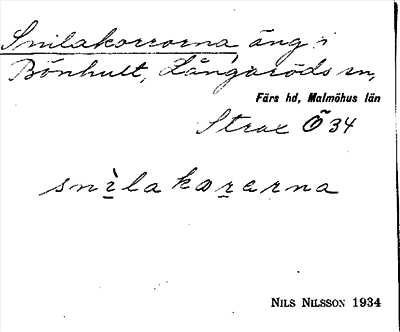 Snilakororna, äng i
Bönhult, Långaröds sn,
Färs hd, Malmöhus län
Strax Ö 34
snìlakorerna
NILS NILSSON 1934